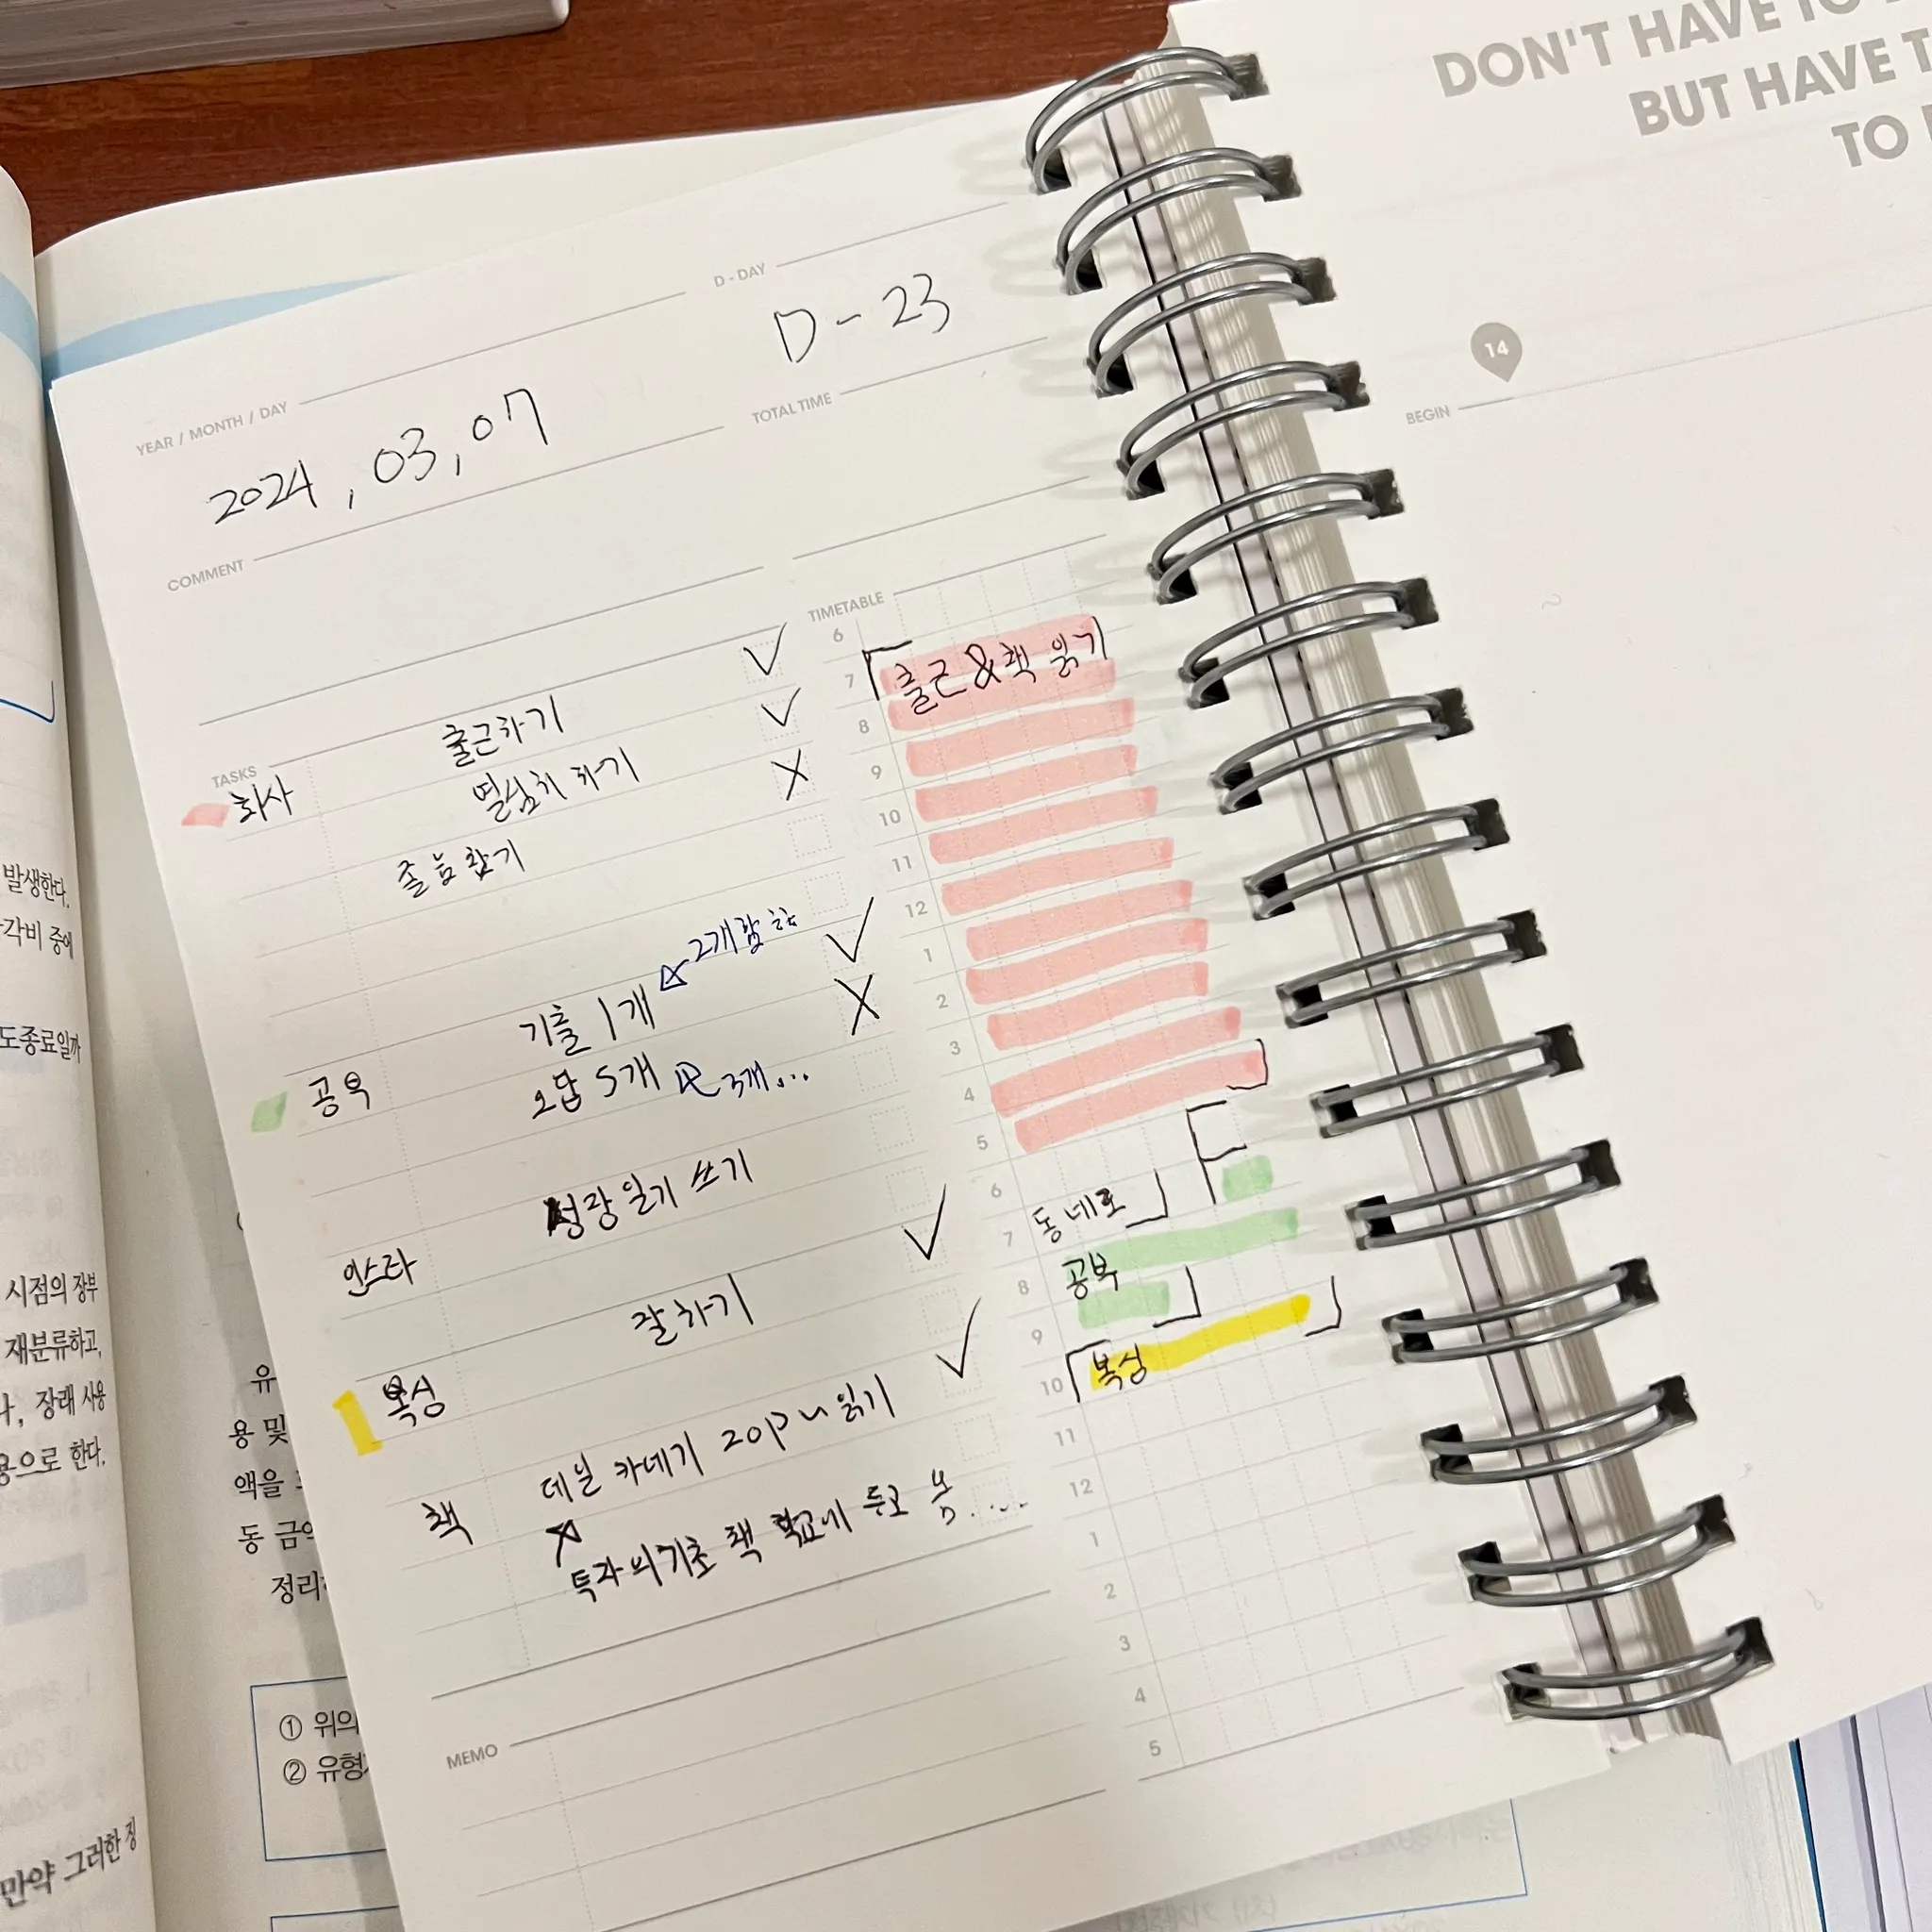 DON'T HAVE TO
BUT HAVE T
TO
14
BEGIN
D - DAY
D - 23
YEAR / MONTH / DAY
2024, 03, 07
TOTAL TIME
COMMENT
TASKS
회사
출근하기
열심히 하기
졸음참기
공부
기출 1개
2개
오답 5개 3개...
인스타
성장일기 쓰기
복싱
잘하기
책
데일 카네기 20p 읽기
기초 책
MEMO
TIMETABLE
6
7 출근 & 책 읽기
8
9
10
11
12
1
2
3
4
5
6
7
8 공부
9
10 복싱
11
12
1
2
3
4
5
발생한다.
각비 중에
도종료일까
시점의 장부
재분류하고,
장래 사용
용으로 한다.
만약 그러한 징
유
용 및
액을
동 금
정리
① 위의
② 유형